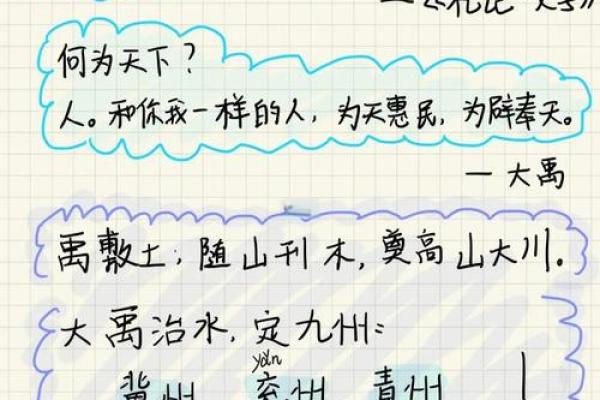 何为天下？
人。和你我一样的人，为天惠民，为辟奉天。
— 大禹
禹敷土，随山刊木，奠高山大川。
大禹治水，定九州：
yǎn
冀州 兖州 青州